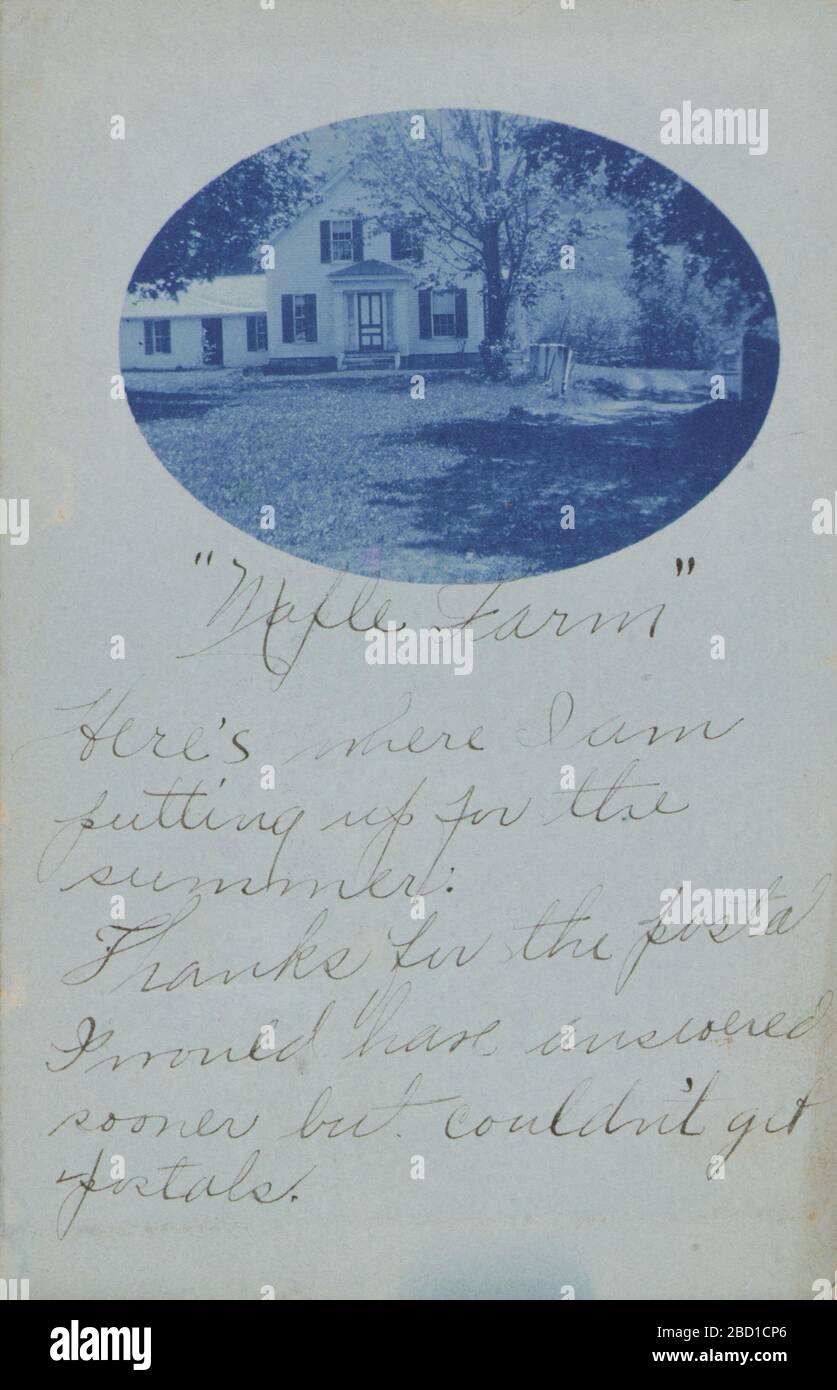 "Maple Farm"
Here's where I am
putting up for the
summer.
Thanks for the postal
I would have answered
sooner but couldn't get
postals.
alamy
Image ID: 2BD1CP6
www.alamy.com